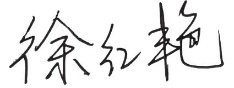 徐红艳